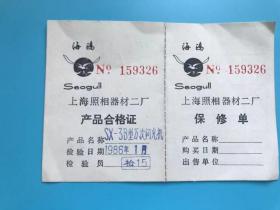 海鸥
№ 159326
Seagull
上海照相器材二厂
产品合格证
产品名称 SX-3B型万次闪光机
检验日期 1986年1月
检验员 检15
海鸥
№ 159326
Seagull
上海照相器材二厂
保修单
产品名称
购买日期
出售单位